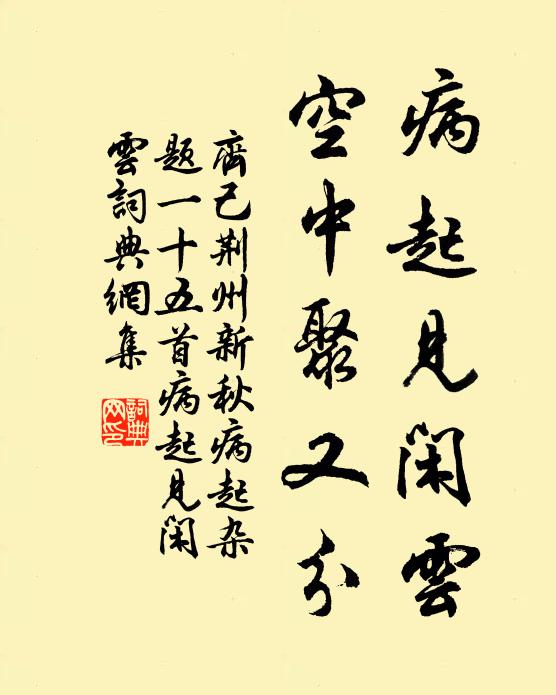 病起見閑雲
空中聚又分
齊己荆州新秋病起杂
題一十五首病起見閑
雲詞典網集
詞典
网印